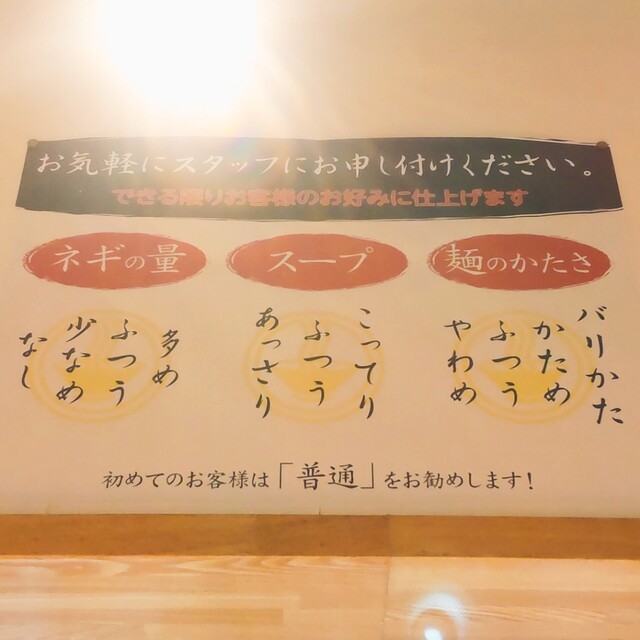 お気軽にスタッフにお申し付けください。
できる限りお客様のお好みに仕上げます
ネギの量
多め
ふつう
少なめ
なし
スープ
こってり
ふつう
あっさり
麺のかたさ
バリかた
かため
ふつう
やわめ
初めてのお客様は「普通」をお勧めします！